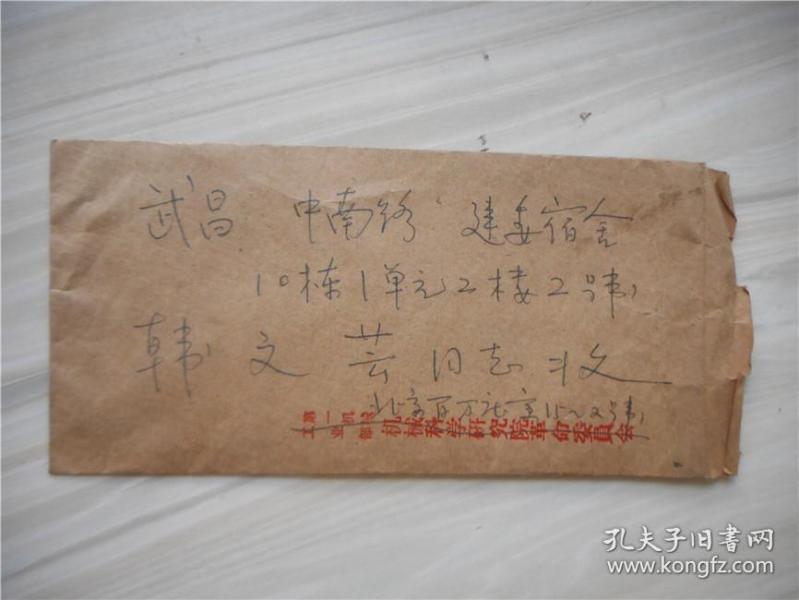 武昌 中南路 建委宿舍
10栋1单元二楼2号
韩文芸同志收
北京百万庄
第一机械
工业部
机械科学研究院革命委員会
孔夫子旧書网
www.kongfz.com